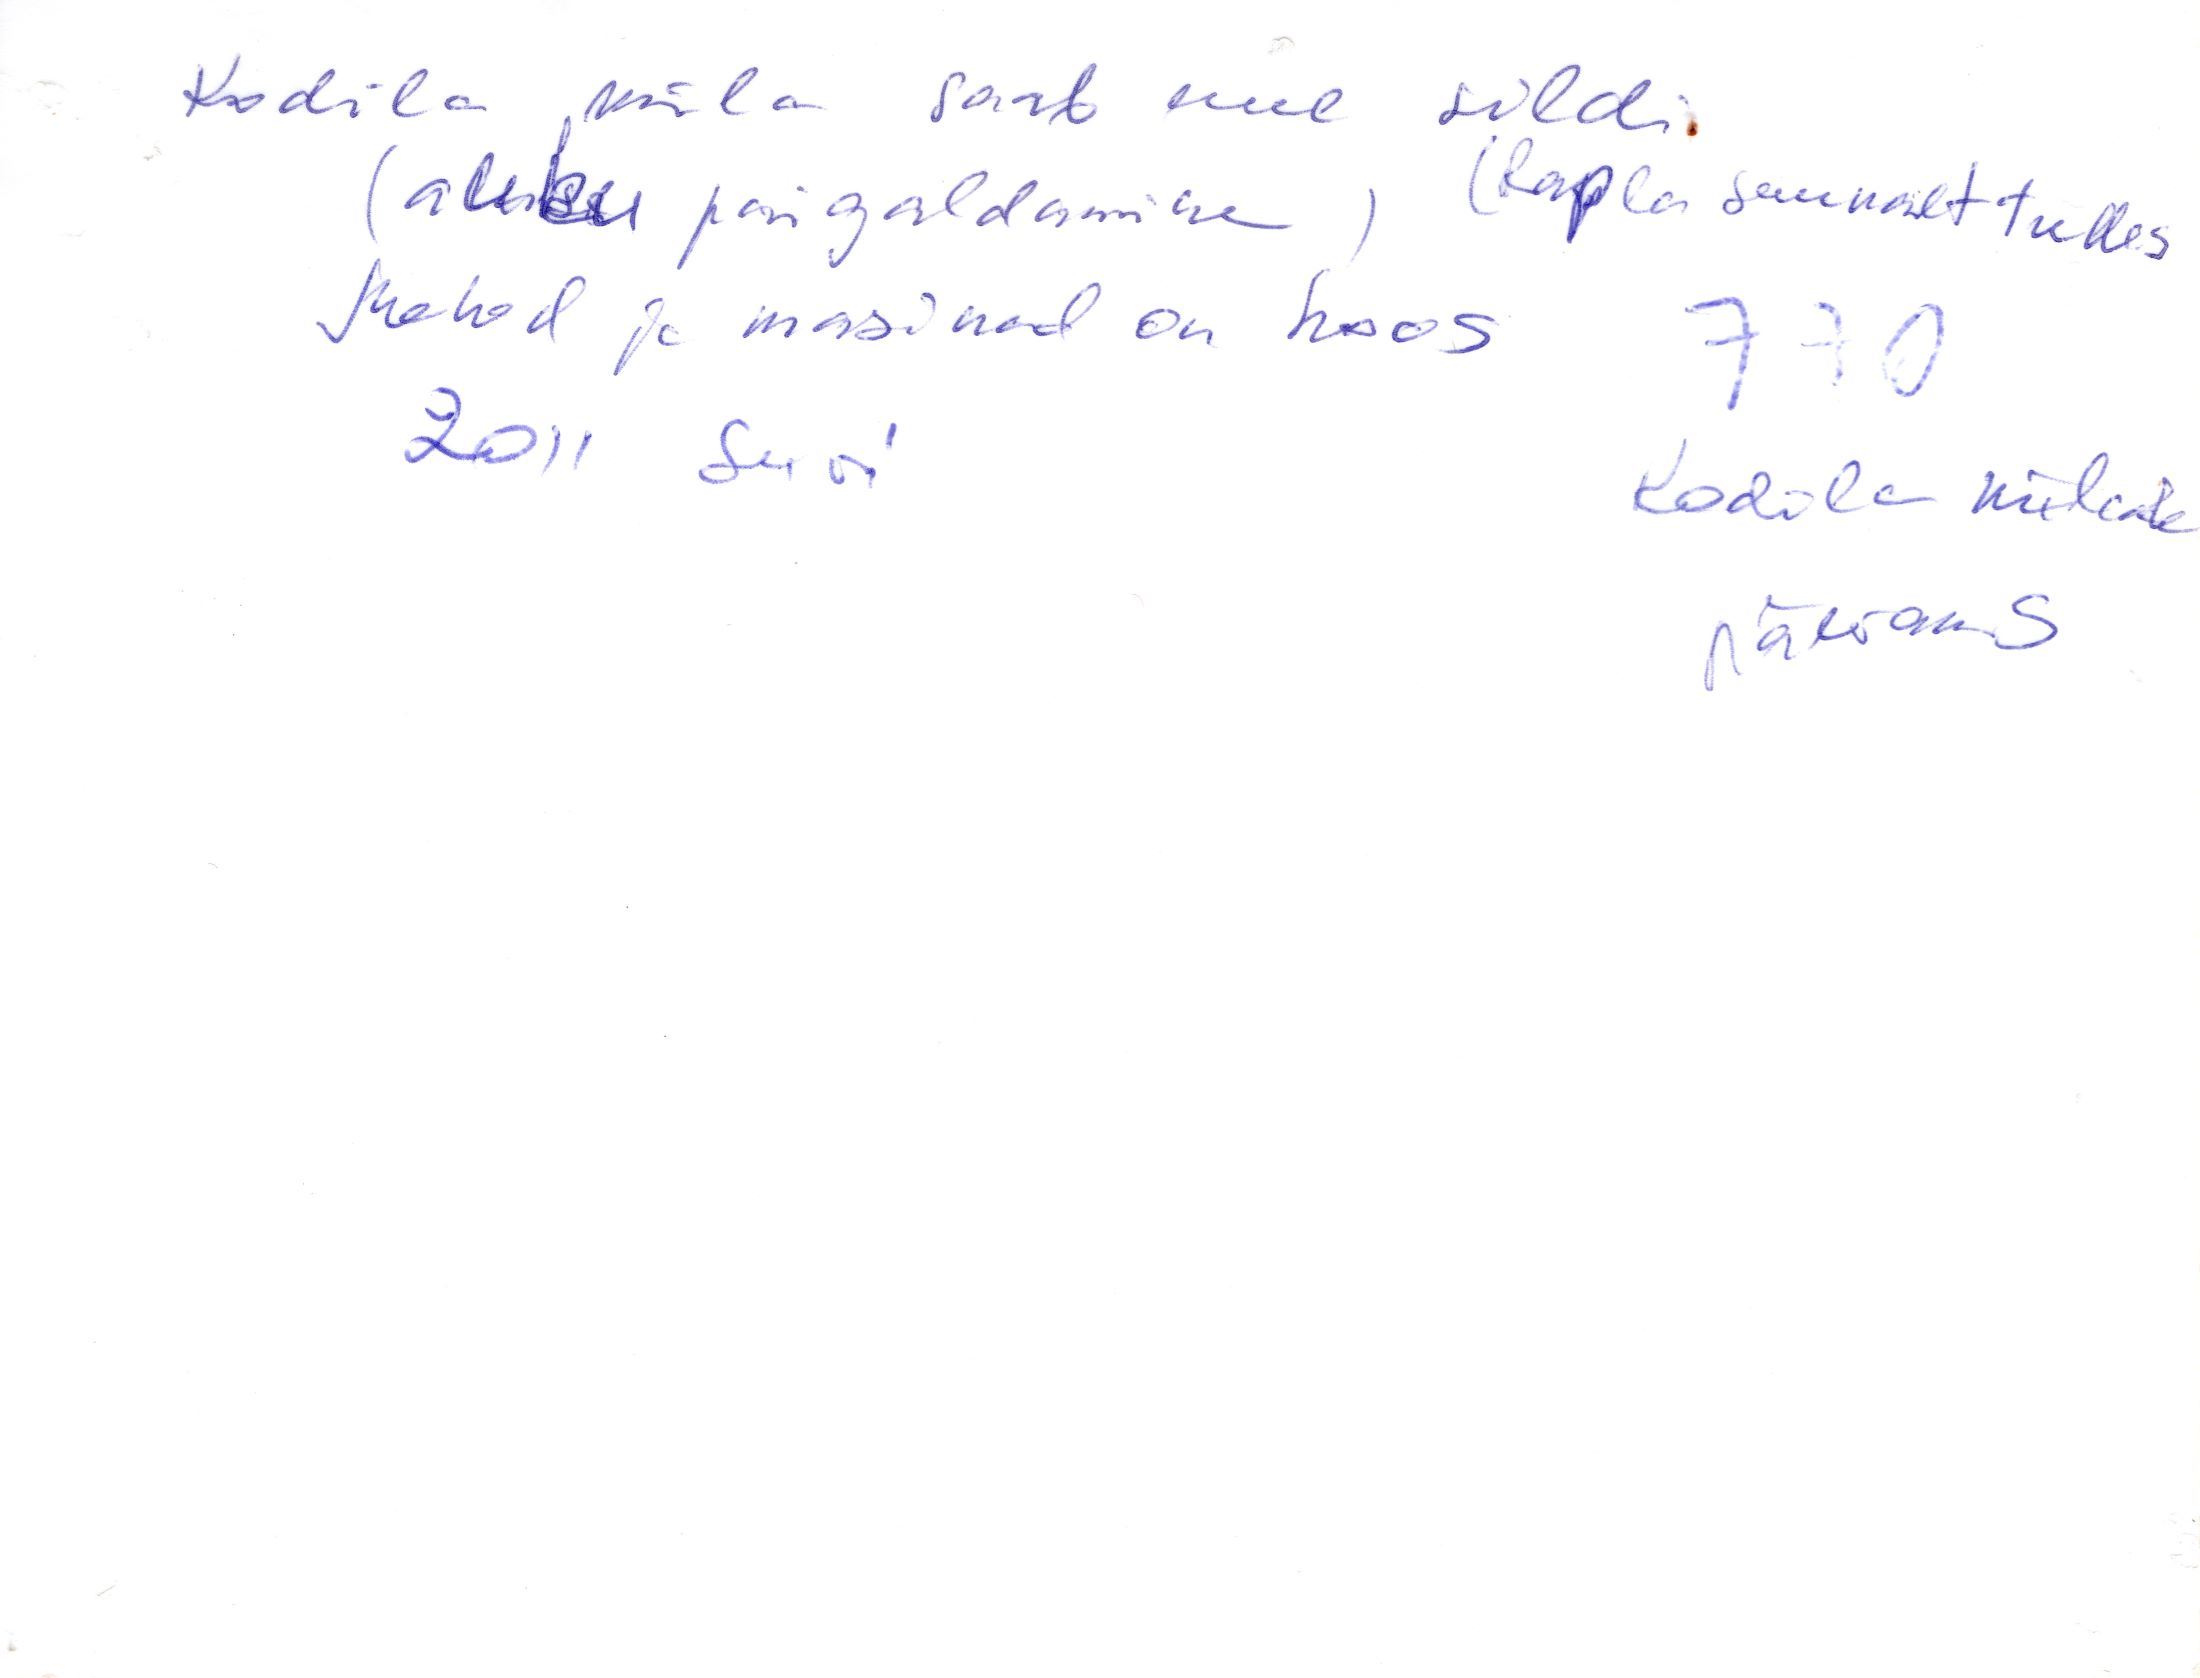 Kodila küla saab uue sildi.
(aluse paigaldamine) (Rapla suunalt tulles
Mehed ja masinad on koos 770
2011 suvi
Kodila külade
päevaraamat